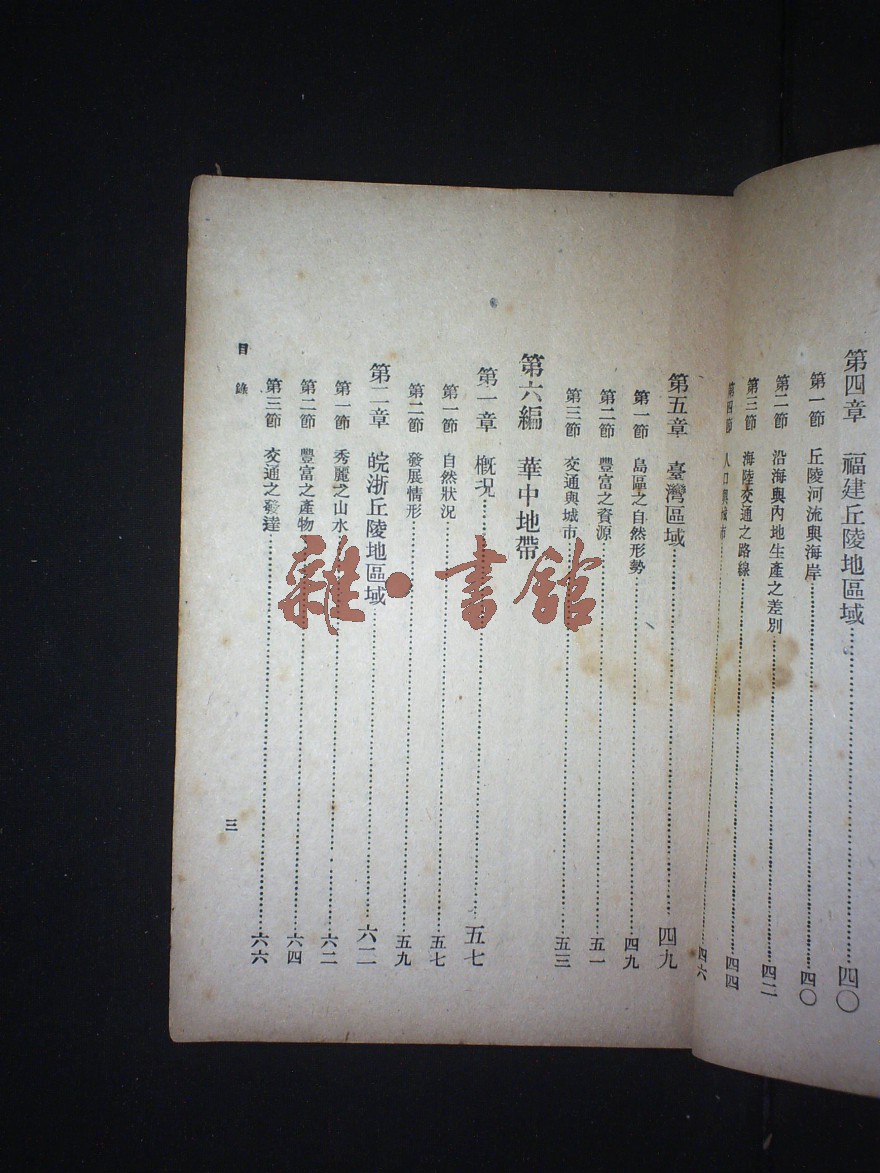 第四章 福建丘陵地區域 四〇
第一節 丘陵河流與海岸 四〇
第二節 沿海與內地生產之差別 四二
第三節 海陸交通之路線 四四
第四節 人口與城市 四六
第五章 臺灣區域 四九
第一節 島區之自然形勢 四九
第二節 豐富之資源 五一
第三節 交通與城市 五三
第六編 華中地帶
第一章 概況 五七
第一節 自然狀況 五七
第二節 發展情形 五九
第二章 皖浙丘陵地區域 六二
第一節 秀麗之山水 六二
第二節 豐富之產物 六四
第三節 交通之發達 六六
目錄
三
雜·書館